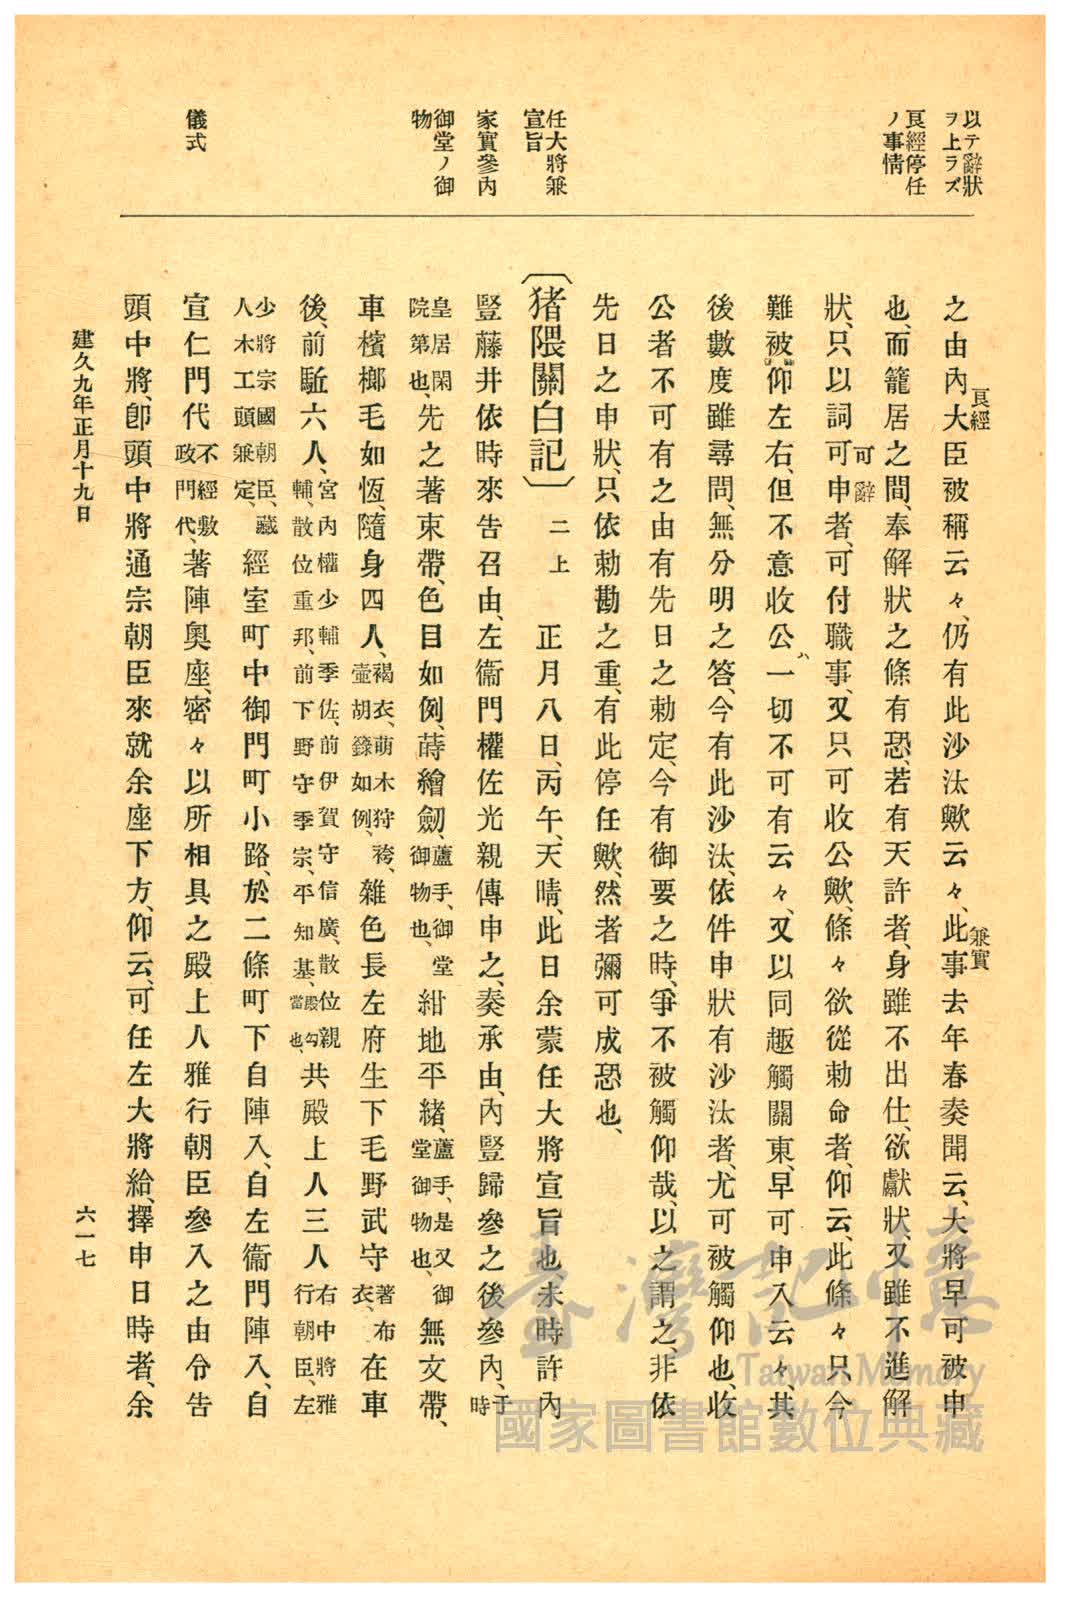 以テ辭狀
ヲ上ラズ
良經停任
ノ事情
任大將兼
宣旨
家實參內
御堂ノ御
物
儀式
之由內大臣被稱云々、仍有此沙汰歟云々、此事去年春奏聞云、大將早可被申
良經
兼實
也、而籠居之間、奉解狀之條有恐、若有天許者、身雖不出仕、欲獻狀、又雖不進解
狀、只以詞可申者、可付職事、又只可收公歟、條々欲從勅命者、仰云、此條々只今
可辭
難被仰左右、但不意收公一切不可有云々、又以同趣觸關東、早可申入云々、其
ハ
後數度雖尋問、無分明之答、今有此沙汰、依件申狀有沙汰者、尤可被觸仰也、收
公者不可有之由有先日之勅定、今有御要之時、爭不被觸仰哉、以之謂之、非依
先日之申狀、只依勅勘之重、有此停任歟、然者彌可成恐也、
〔猪隈關白記〕二上 正月八日、丙午、天晴、此日余蒙任大將宣旨也、未時許內
豎藤井依時來告召由、左衞門權佐光親傳申之、奏承由、內豎歸參之後參內、于時
皇居閑院第也、先之著束帶、色目如例、蒔繪劒、蘆手、御堂御物也、紺地平緒、蘆手、是又御堂御物也、無文帶、
車檳榔毛如恆、隨身四人、褐衣、萌木狩袴、壷胡籙如例、雜色長左府生下毛野武守著布衣、在車
後、前駈六人、宮內權少輔季佐、前伊賀守信廣、散位親輔、散位重邦、前下野守季宗、平知基、殿勾當也、共殿上人三人右中將雅行朝臣、左
少將宗國朝臣、藏人木工頭兼定、經室町中御門町小路、於二條町下自陣入、自左衞門陣入、自
宣仁門代不經敷政門代、著陣奧座、密々以所相具之殿上人雅行朝臣參入之由令告
頭中將、卽頭中將通宗朝臣來就余座下方、仰云、可任左大將給、擇申日時者、余
建久九年正月十九日
六一七
臺灣記憶
Taiwan Memory
國家圖書館數位典藏